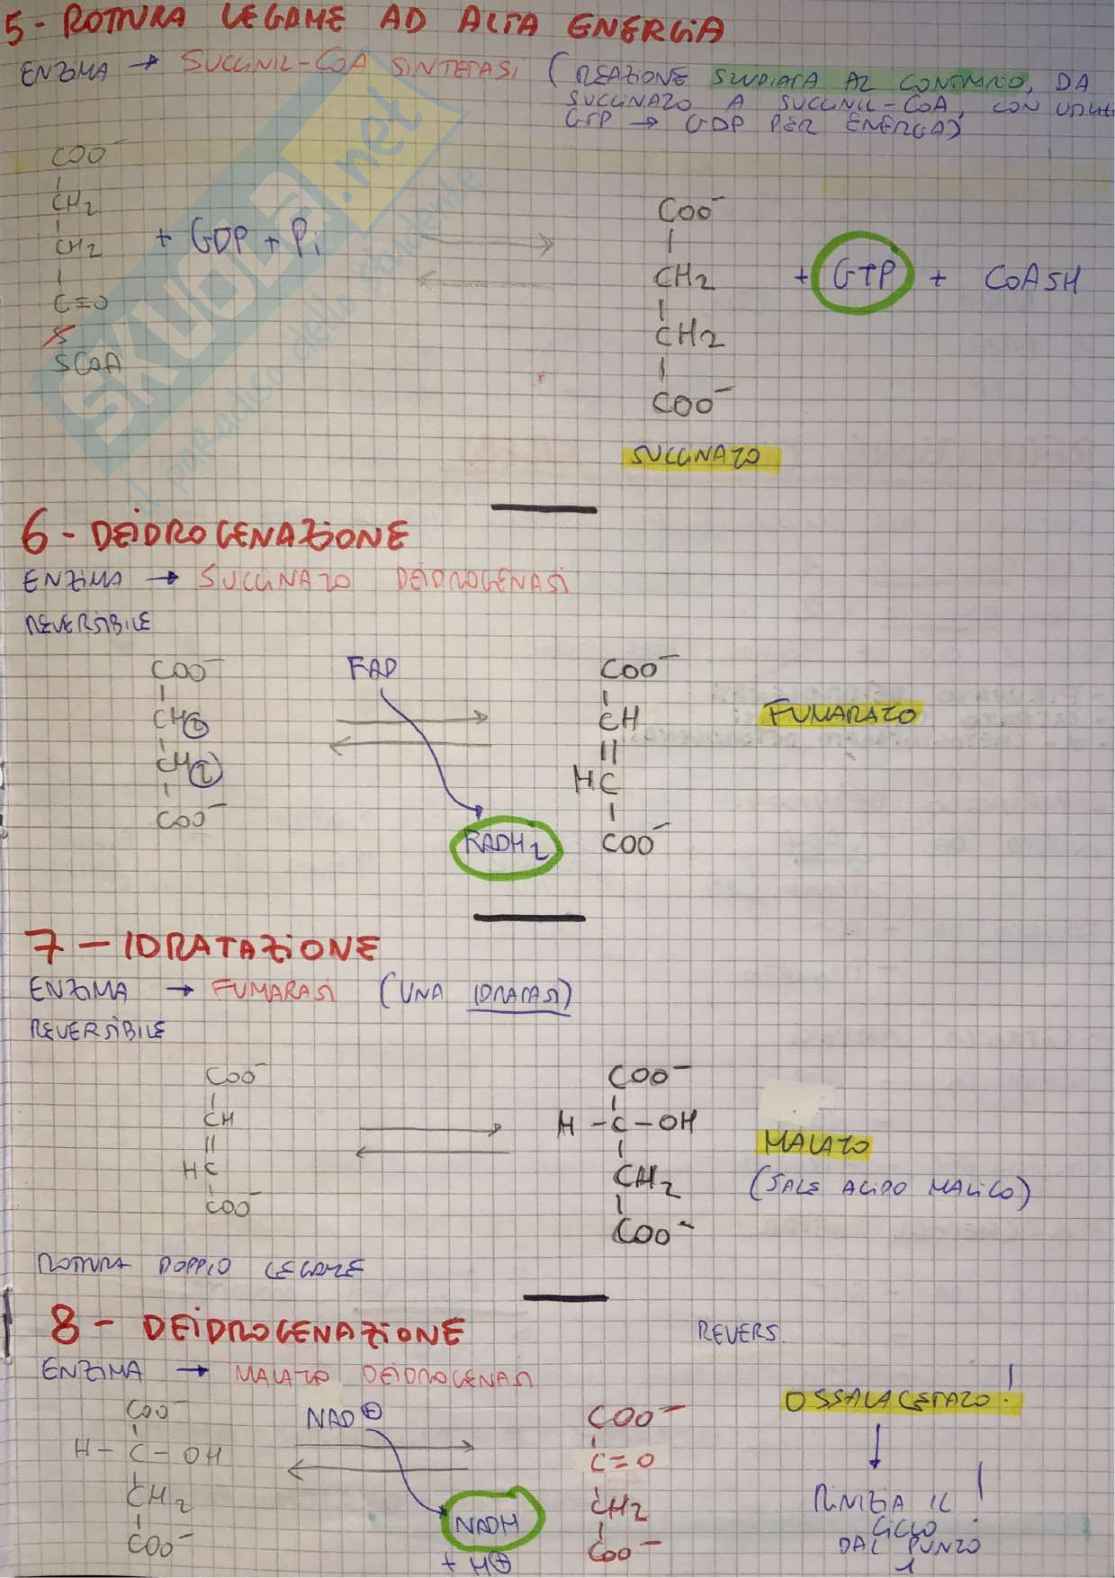 5 - ROTTURA LEGAME AD ALTA ENERGIA
ENZIMA → SUCCINIL-COA SINTETASI (REAZIONE STUDIATA AL CONTRARIO, DA
SUCCINATO A SUCCINIL-COA, CON
GTP → GDP PER ENERGIA)
COO⁻
CH2
CH2
C=O
SCOA
+ GDP + Pi
COO⁻
CH2
CH2
COO⁻
+ GTP + COASH
SUCCINATO
SKUOLA.net
il paradiso dello studente
6 - DEIDROGENAZIONE
ENZIMA → SUCCINATO DEIDROGENASI
REVERSIBILE
COO⁻
CH2
CH2
COO⁻
FAD
FADH2
COO⁻
CH
HC
COO⁻
FUMARATO
7 - IDRATAZIONE
ENZIMA → FUMARASI (UNA IDRATASI)
REVERSIBILE
COO⁻
CH
HC
COO⁻
COO⁻
H - C - OH
CH2
COO⁻
MALATO
(SALE ACIDO MALICO)
ROTTURA DOPPIO LEGAME
8 - DEIDROGENAZIONE
REVERS.
ENZIMA → MALATO DEIDROGENASI
COO⁻
H - C - OH
CH2
COO⁻
NAD⊕
NADH
+ H⊕
COO⁻
C=O
CH2
COO⁻
OSSALACETATO!
↓
RINIZIA IL
CICLO!
DAL PUNTO
1